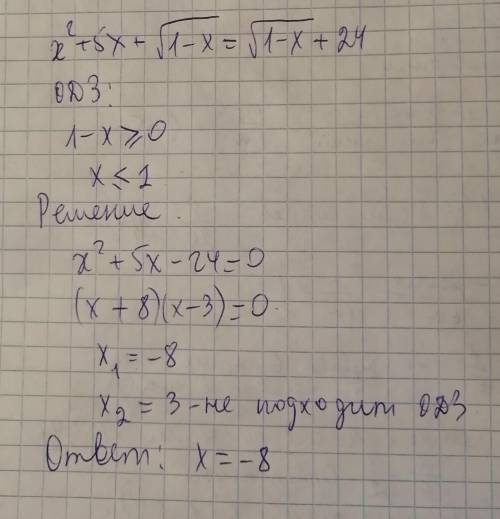 x² + 5x + √1-x = √1-x + 24
ОДЗ:
1-x ⩾ 0
x ≤ 1
Решение.
x² + 5x - 24 = 0
(x + 8)(x - 3) = 0.
x₁ = -8
x₂ = 3 - не подходит ОДЗ
Ответ: x = -8